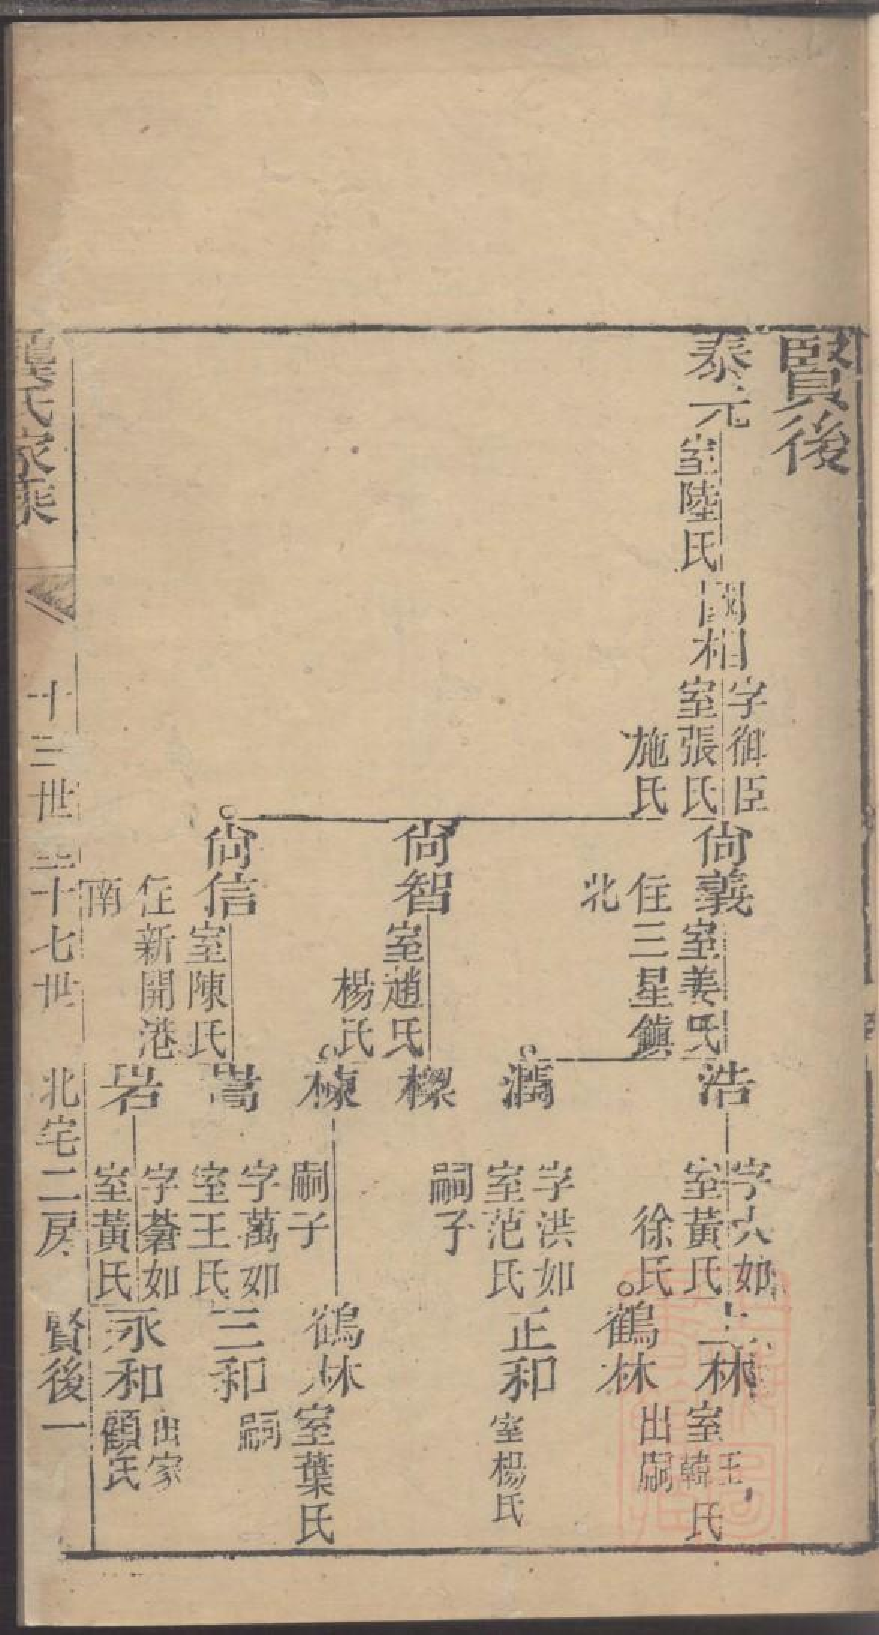 賢後
泰元
室陸氏
國相
字御臣
室張氏
施氏
尙義
室姜氏
住三星鎮
北
尙智
室趙氏
楊氏
尙信
室陳氏
住新開港
南
浩
室黃氏
徐氏
潤
字洪如
室范氏
樑
嗣子
棟
嗣子
嵩
字萬如
室王氏
岩
字蒼如
室黃氏
士林
室王韓氏
鶴林
出嗣
正和
室楊氏
鶴林
室葉氏
三和
嗣
永和
出家
顧氏
龔氏家乘
十三世至十七世
北宅二房
賢後一